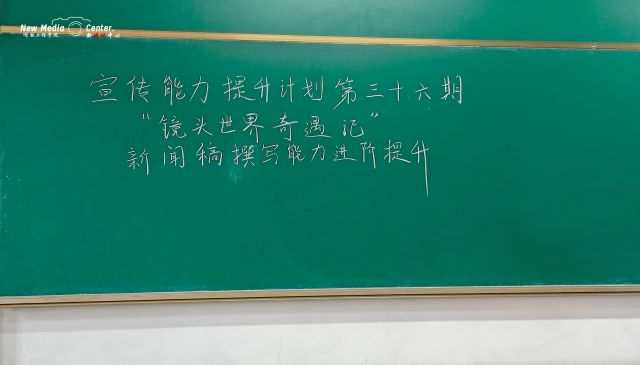 New Media Center.
宣传能力提升计划第三十六期
“镜头世界奇遇记”
新闻稿撰写能力进阶提升